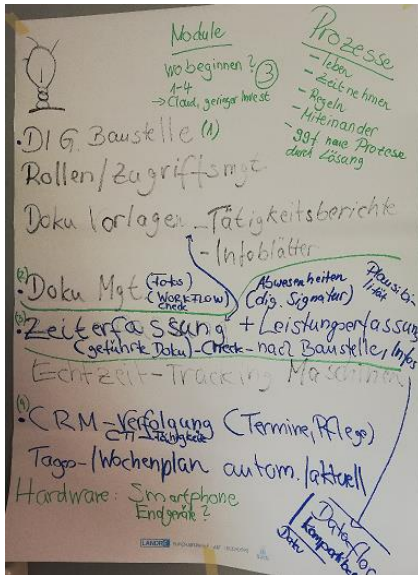 Module
wo beginnen? (3)
1-4
→ Cloud, geringer Invest
Prozesse
- leben
- Zeit nehmen
- Regeln
- Miteinander
- ggf neue Prozese
durch Lösung
• DIG. Baustelle (1)
Rollen/Zugriffsmgt.
Doku Vorlagen - Tätigkeitsberichte
- Infoblätter
(2) • Doku Mgt. (Fotos)
(WORKFLOW)
check
Abwesenheiten
(dig. Signatur)
Plausibi-
lität
(3) • Zeiterfassung + Leistungserfassung
(geführte Doku) - Check - nach Baustelle, Infos
Echtzeit-Tracking Maschinen
(4) • CRM - Verfolgung (Termine, Pflege)
CTI → Tätigkeit
Tages-/Wochenplan autom./aktuell
Hardware: Smartphone
Endgeräte?
Dataflor
kompatibel
LANDRÉ